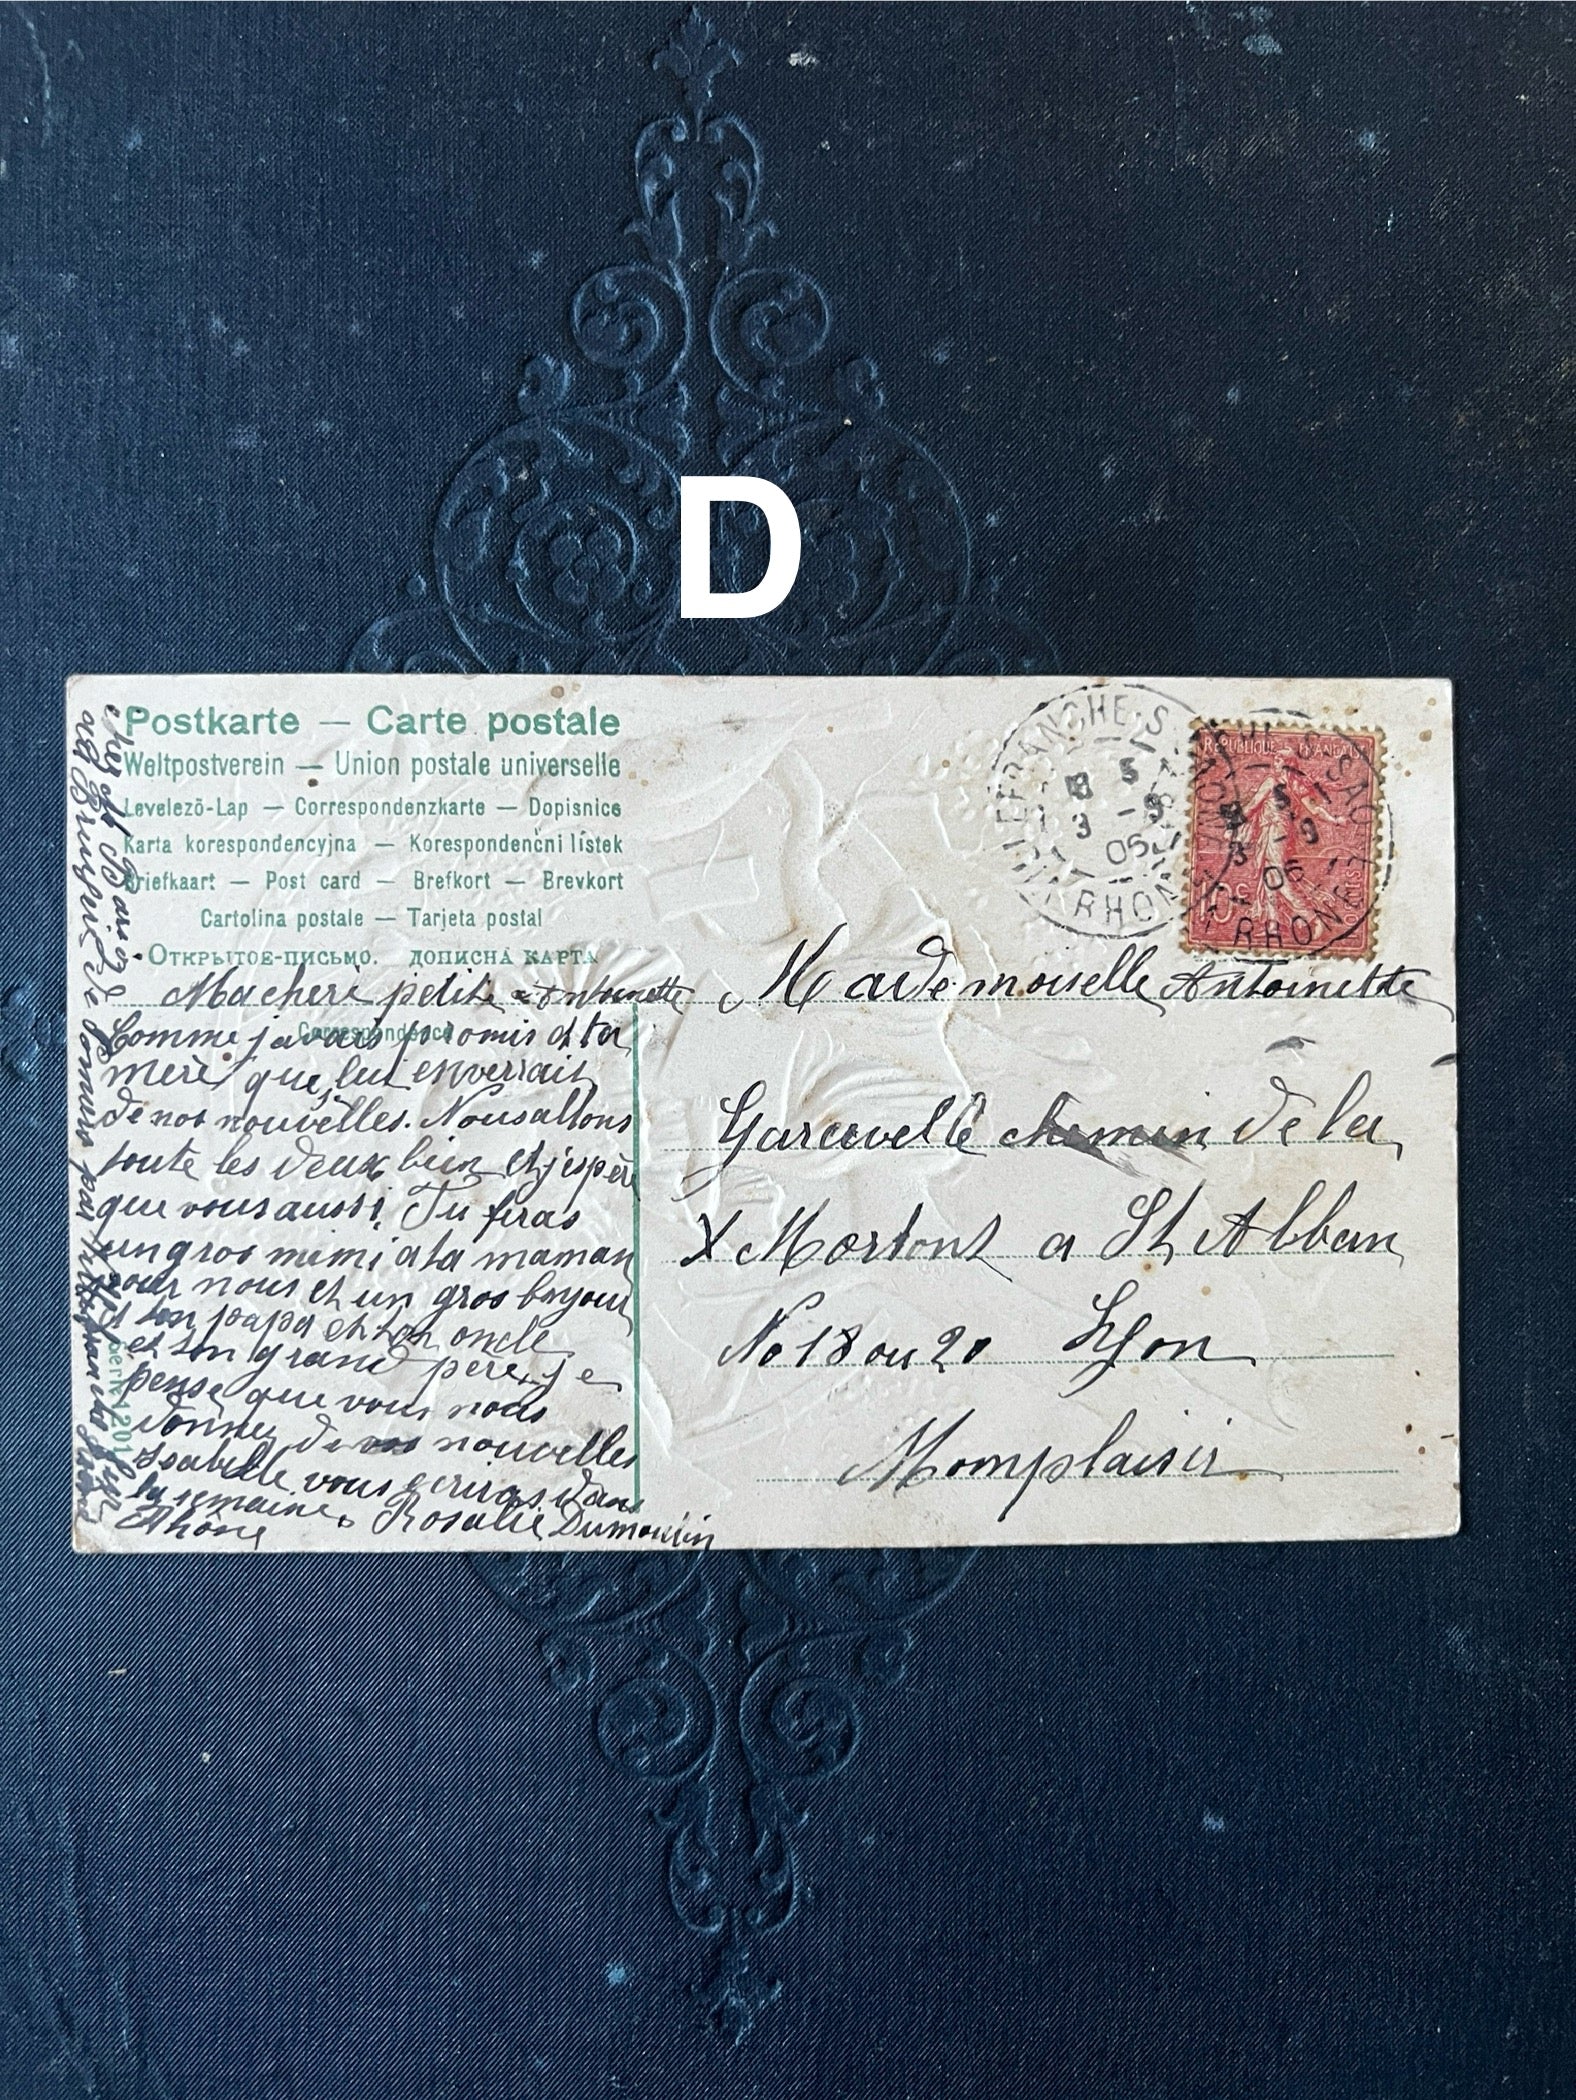 D
Postkarte — Carte postale
Weltpostverein — Union postale universelle
Levelező-Lap — Correspondenzkarte — Dopisnice
Karta korespondencyjna — Korespondenční lístek
Briefkaart — Post card — Brefkort — Brevkort
Cartolina postale — Tarjeta postal
Открытое-письмо. дописна карта
Correspondence
VILLEFRANCHE-S-SAONE
5
3 - 9
05
RHONE
REPUBLIQUE FRANÇAISE
10c
POSTES
Ma cheri petite Antoinette
Comme javais promis a ta
mere que lui enverrais
de nos nouvelles. Nous allons
toute les deux bien et j'espère
que vous aussi, Tu feras
un gros mimi a ta maman
pour nous et un gros bonjour
a ton papa et ton oncle
et ton grand père, je
pense que vous nous
donnez de nos nouvelles
Isabelle vous ecriras dans
la semaine, Rosalie Dumoulin
Rhône
chez M
Mademoiselle Antoinette
chemin de la
X a St Alban
No 18 ou 20 Lyon
Momplaisir